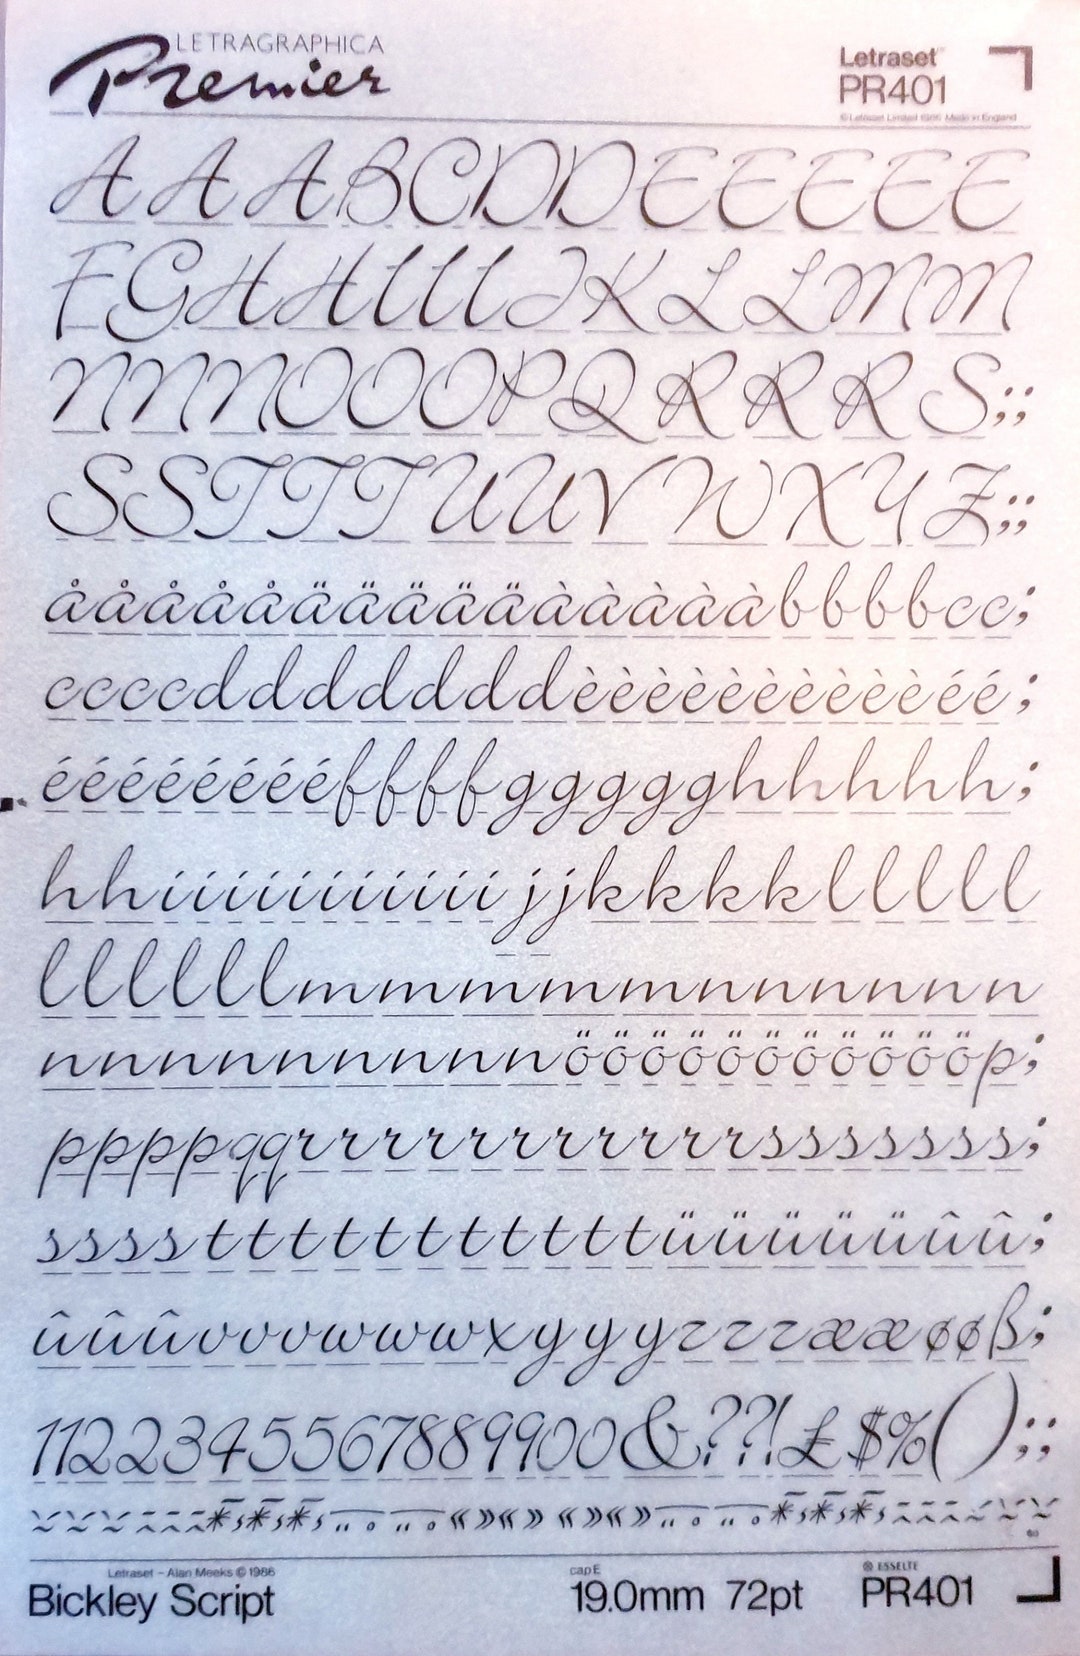 LETRAGRAPHICA
Premier
Letraset
PR401
© Letraset Limited 1986 Made in England
AAABCDDEEEEE
FGHHIIIJKLLMM
NNNOOOPQRRRS;;
SSTTTUUVWXYZ;;
åååååäääääàààààbbbbcc;
ccccdddddddèèèèèèèèèèéé;
ééééééééffffggggghhhhhh;
hhiiiiiiiiiijjkkkklllll
llllllmmmmmnnnnnn
nnnnnnnnnöööööööööööp;
ppppqqrrrrrrrrrrrsssssss;
sssstttttttttttüüüüüûû;
ûûûvvvwwwxyyyzzzææøøß;
1122345567889900&??!£$%();;
Letraset – Alan Meeks © 1986
Bickley Script
cap E
19.0mm 72pt
ESSELTE
PR401